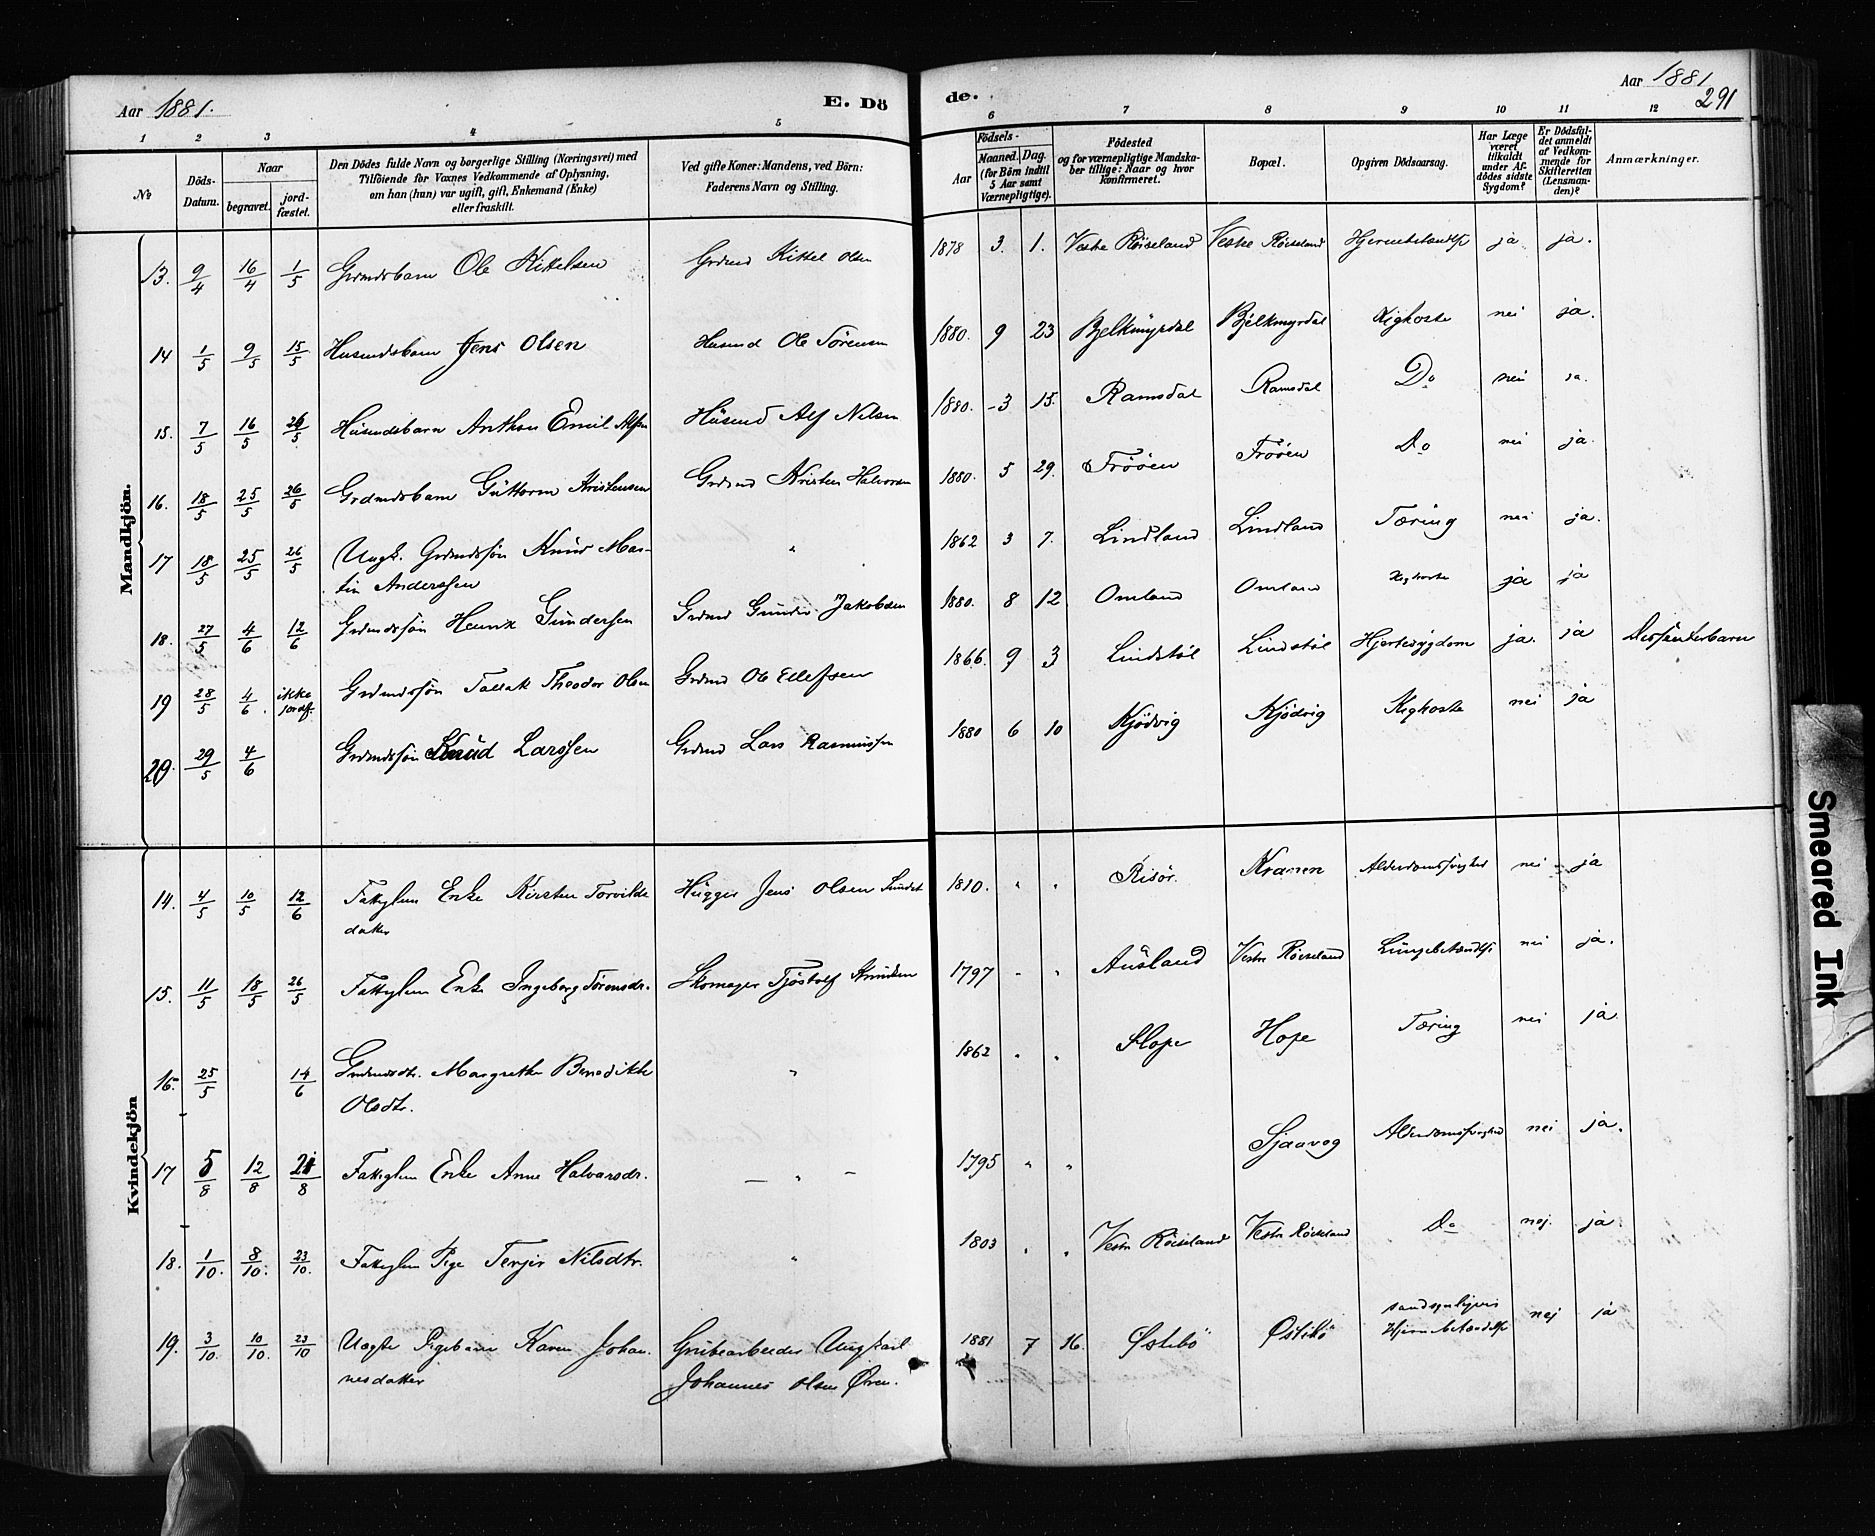 Aar 1881.
E. Dö
de.
Aar 1881
291
1 2 3 4 5 6 7 8 9 10 11 12
№
Döds-Datum.
Naar
begravet.
jord-fæstet.
Den Dödes fulde Navn og borgerlige Stilling (Næringsvei) med
Tilföiende for Voxnes Vedkommende af Oplysning,
om han (hun) var ugift, gift, Enkemand (Enke)
eller fraskilt.
Ved gifte Koner: Mandens, ved Börn:
Faderens Navn og Stilling.
Födsels-
Aar
Maaned. Dag.
(for Börn indtil
5 Aar samt
Værnepligtige).
Födested
og for værnepligtige Mandska-
ber tillige: Naar og hvor
konfirmeret.
Bopæl.
Opgiven Dödsaarsag.
Har Læge
været
tilkaldt
under Af-
dödes sidste
Sygdom?
Er Dödsfal-
det anmeldt
af Vedkom-
mende for
Skifteretten
(Lensman-
den)?
Anmærkninger.
Mandkjön.
13. 9/4 16/4 1/5 Grdmdsbarn Ole Kittelsen Grdmd Kittel Olsen 1878 3. 1. Vestre Röiseland Vestre Röiseland Hjernebetændlse ja ja.
14 1/5 9/5 15/5 Husmdsbarn Jens Olsen Husmd Ole Sörensen 1880. 9 23 Bjelkmyrdal Bjelkmyrdal Kighoste nei ja.
15. 7/5 16/5 26/5 Husmdsbarn Anthon Emil Alfsen Husmd Alf Nilsen 1880. 3 15. Ramsdal Ramsdal Do nei ja.
16. 18/5 25/5 26/5 Grdmdsbarn Guttorm Kristensen Grdmd Kristen Halvorsen 1880. 5 29. Frööen Frööen Do nei ja.
17 18/5 25/5 26/5 Ungk. Grdmdssön Knud Mar-
tin Anderssen " 1862 3 7. Lindland Lindland Tæring nei ja.
18. 27/5 4/6 12/6 Grdmdssön Henrik Gundersen Grdmd Gunder Jakobsen 1880. 8 12 Omland Omland Kighoste ja ja
19 28/5 4/6 ikke jordf. Grdmdssön Tallak Theodor Olsen Grdmd Ole Ellefsen 1866. 9 3 Lindstöl Lindstöl Hjertesygdom ja. ja Dissenterbarn
20. 29/5 4/6 Grdmdssön Knud Larssen Grdmd Lars Rasmussen 1880 6 10 Kjödvig Kjödvig Kighoste nei ja
Kvindekjön
14. 4/5 10/5 12/6 Fattiglem Enke Kirsten Torvilds
datter Hugger Jens Olsen Sundet 1810. " " Risör. Kranen Alderdomssvaghed nei ja
15. 11/5 18/5 26/5 Fattiglem Enke Ingeborg Törensdr. Skomager Tjöstolf 1797 " " Ausland Vestre Röiseland Lungebetændlse nei ja.
16. 25/5 14/6 Grdmdsdtr. Margrethe Benedikte
Olsdtr. " 1862 " " Hope Hope Tæring nei ja.
17 5/8 12/8 21/8 Fattiglem Enke Anne Halvorsdr. — " — 1795 " " Sjaavog Alderdomssvaghed nei ja.
18. 1/10. 8/10. 23/10. Fattiglem Pige Terjer Nilsdtr. " 1803 " " Vestre Röiseland Vestre Röiseland Do nej. ja.
19. 3/10. 10/10. 23/10 Uægte Pigebarn Karen Johan-
nesdatter Grubearbeider Ungkarl
Johannes Olsen Øren. 1881 7 16. Østebö Østebö sandsynligvis
Hjernebetændlse nej ja
Smeared Ink